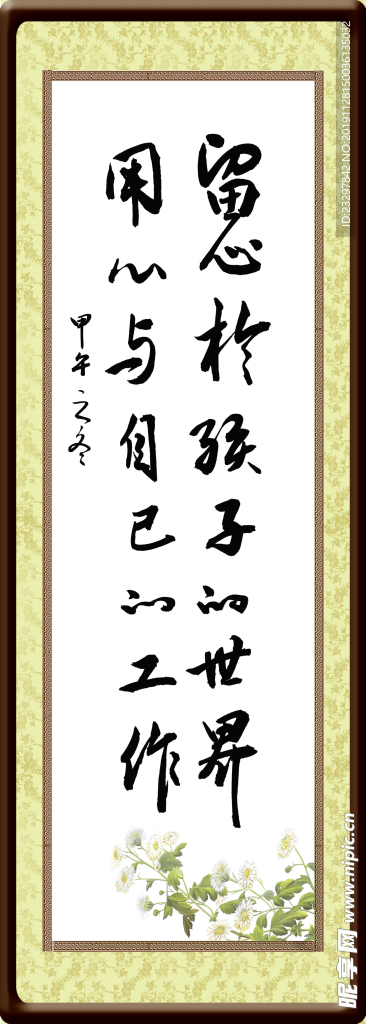 留心於孩子的世界
用心与自己的工作
甲午之冬
ID:23297842 NO:20191128150036135032
昵享网 www.nipic.cn